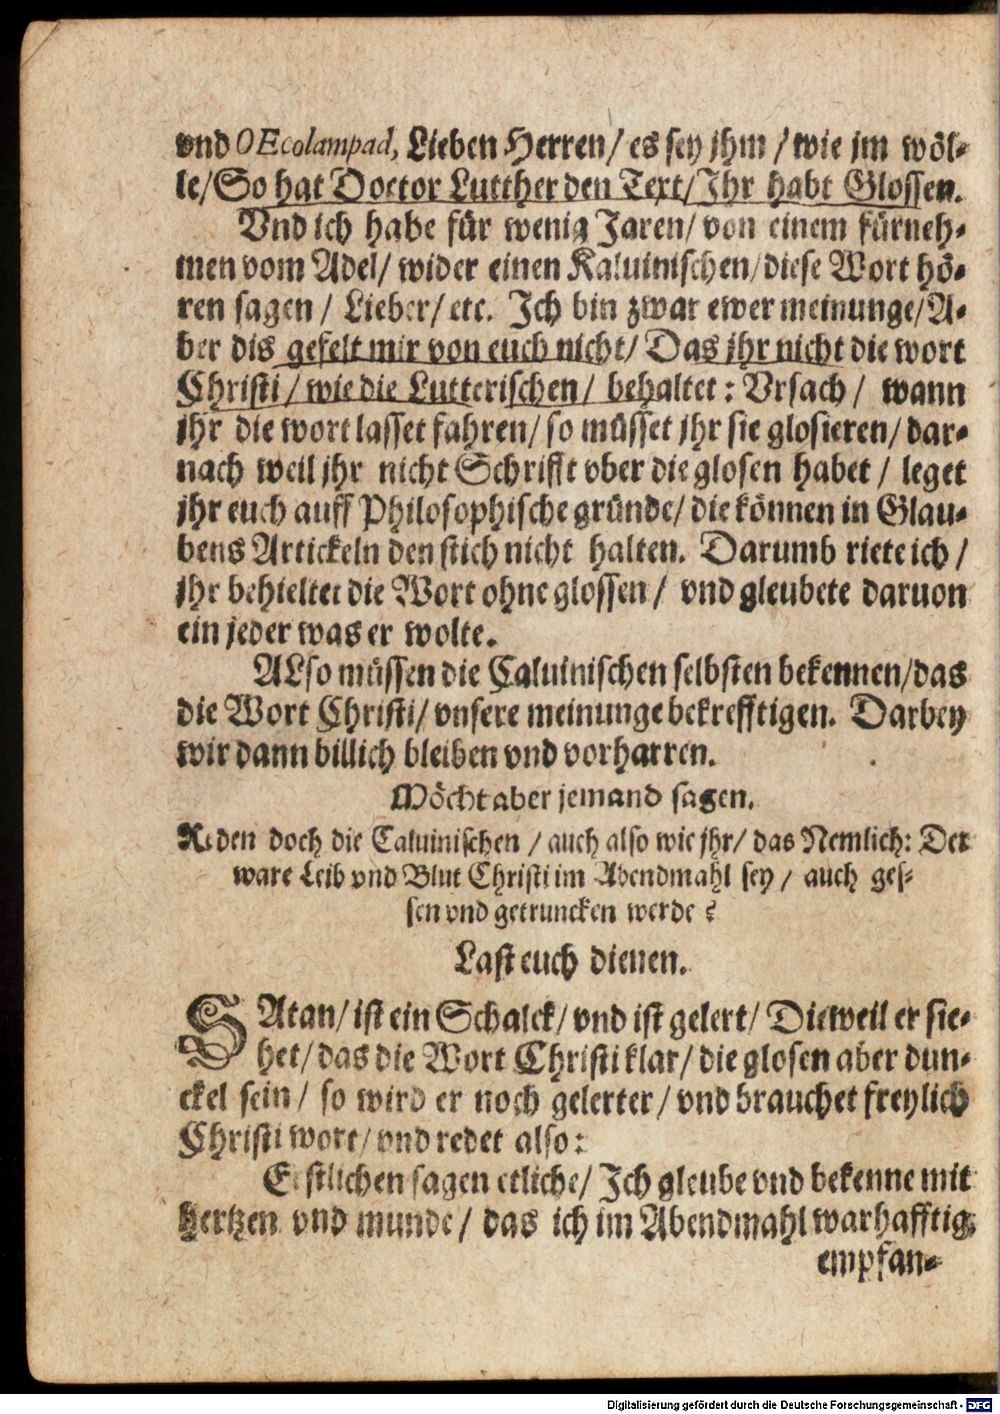 vnd OEcolampad, Lieben Herren/ es sey jhm / wie jm wöl⸗
le/So hat Doctor Lutther den Text/Ihr habt Glossen.
Vnd ich habe für wenig Jaren/ von einem fürneh⸗
men vom Adel/ wider einen Kaluinischen/diese Wort hö⸗
ren sagen / Lieber/ etc. Ich bin zwar ewer meinunge/A⸗
ber dis gefelt mir von euch nicht/ Das jhr nicht die wort
Christi / wie die Lutterischen / behaltet : Vrsach / wann
jhr die wort lasset fahren/ so müsset jhr sie glosieren/ dar⸗
nach weil jhr nicht Schrifft vber die glosen habet / leget
jhr euch auff Philosophische gründe/ die können in Glau⸗
bens Artickeln den stich nicht halten. Darumb riete ich /
jhr behieltet die Wort ohne glossen / vnd gleubete daruon
ein jeder was er wolte.
ALso müssen die Caluinischen selbsten bekennen/das
die Wort Christi/ vnsere meinunge bekrefftigen. Darbey
wir dann billich bleiben vnd vorharren.
Möcht aber jemand sagen.
Reden doch die Caluinischen / auch also wie jhr/ das Nemlich: Der
ware Leib vnd Blut Christi im Abendmahl sey / auch ges⸗
sen vnd getruncken werde ?
Last euch dienen.
SAtan/ ist ein Schalck/ vnd ist gelert/ Dieweil er sie⸗
het/ das die Wort Christi klar/ die glosen aber dun⸗
ckel sein / so wird er noch gelerter/ vnd brauchet freylich
Christi wort/ vnd redet also:
Erstlichen sagen etliche/ Ich gleube vnd bekenne mit
hertzen vnd munde/ das ich im Abendmahl warhafftig
empfan⸗
Digitalisierung gefördert durch die Deutsche Forschungsgemeinschaft - DFG